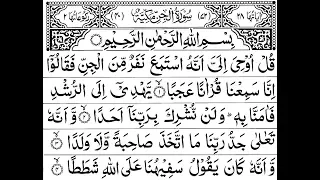 اٰيَاتُهَا ٢٨ (٧٢) سُوْرَةُ الْجِنِّ مَكِّيَّةٌ (٤٠) رُكُوْعَاتُهَا ٢
بِسْمِ اللّٰهِ الرَّحْمٰنِ الرَّحِيْمِ
قُلْ اُوْحِيَ اِلَيَّ اَنَّهُ اسْتَمَعَ نَفَرٌ مِّنَ الْجِنِّ فَقَالُوْٓا
اِنَّا سَمِعْنَا قُرْاٰنًا عَجَبًا ۙ يَّهْدِيْٓ اِلَى الرُّشْدِ
فَاٰمَنَّا بِهٖ ؕ وَلَنْ نُّشْرِكَ بِرَبِّنَآ اَحَدًا ۙ وَّاَنَّهٗ
تَعٰلٰى جَدُّ رَبِّنَا مَا اتَّخَذَ صَاحِبَةً وَّلَا وَلَدًا ۙ
وَّاَنَّهٗ كَانَ يَقُوْلُ سَفِيْهُنَا عَلَى اللّٰهِ شَطَطًا ۙ